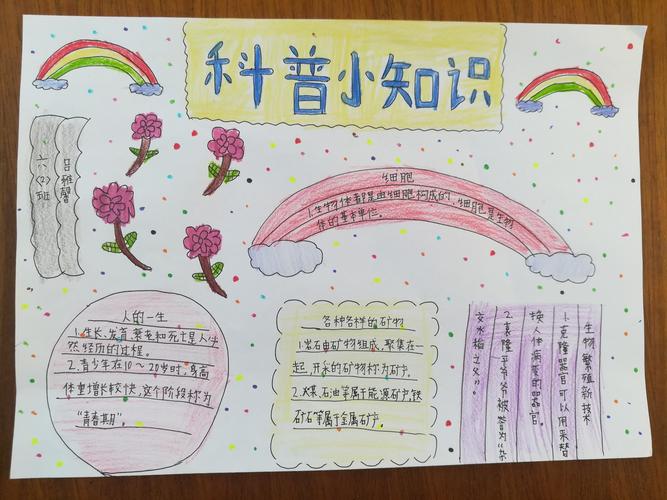 科普小知识
六(2)班
吕雅馨
细胞
1.生物体都是由细胞构成的,细胞是生物
体的基本单位。
人的一生
1.生长、发育、衰老和死亡是人必
然经历的过程。
2.青少年在10～20岁时,身高
体重增长较快,这个阶段称为
“青春期”。
各种各样的矿物
1.岩石由矿物组成,聚集在一
起,开采的矿物称为矿产。
2.煤、石油等属于能源矿产,铁
矿石等属于金属矿产。
生物繁殖新技术
1.克隆器官可以用来替
换人体病变的器官。
2.袁隆平爷爷被誉为“杂
交水稻之父”。